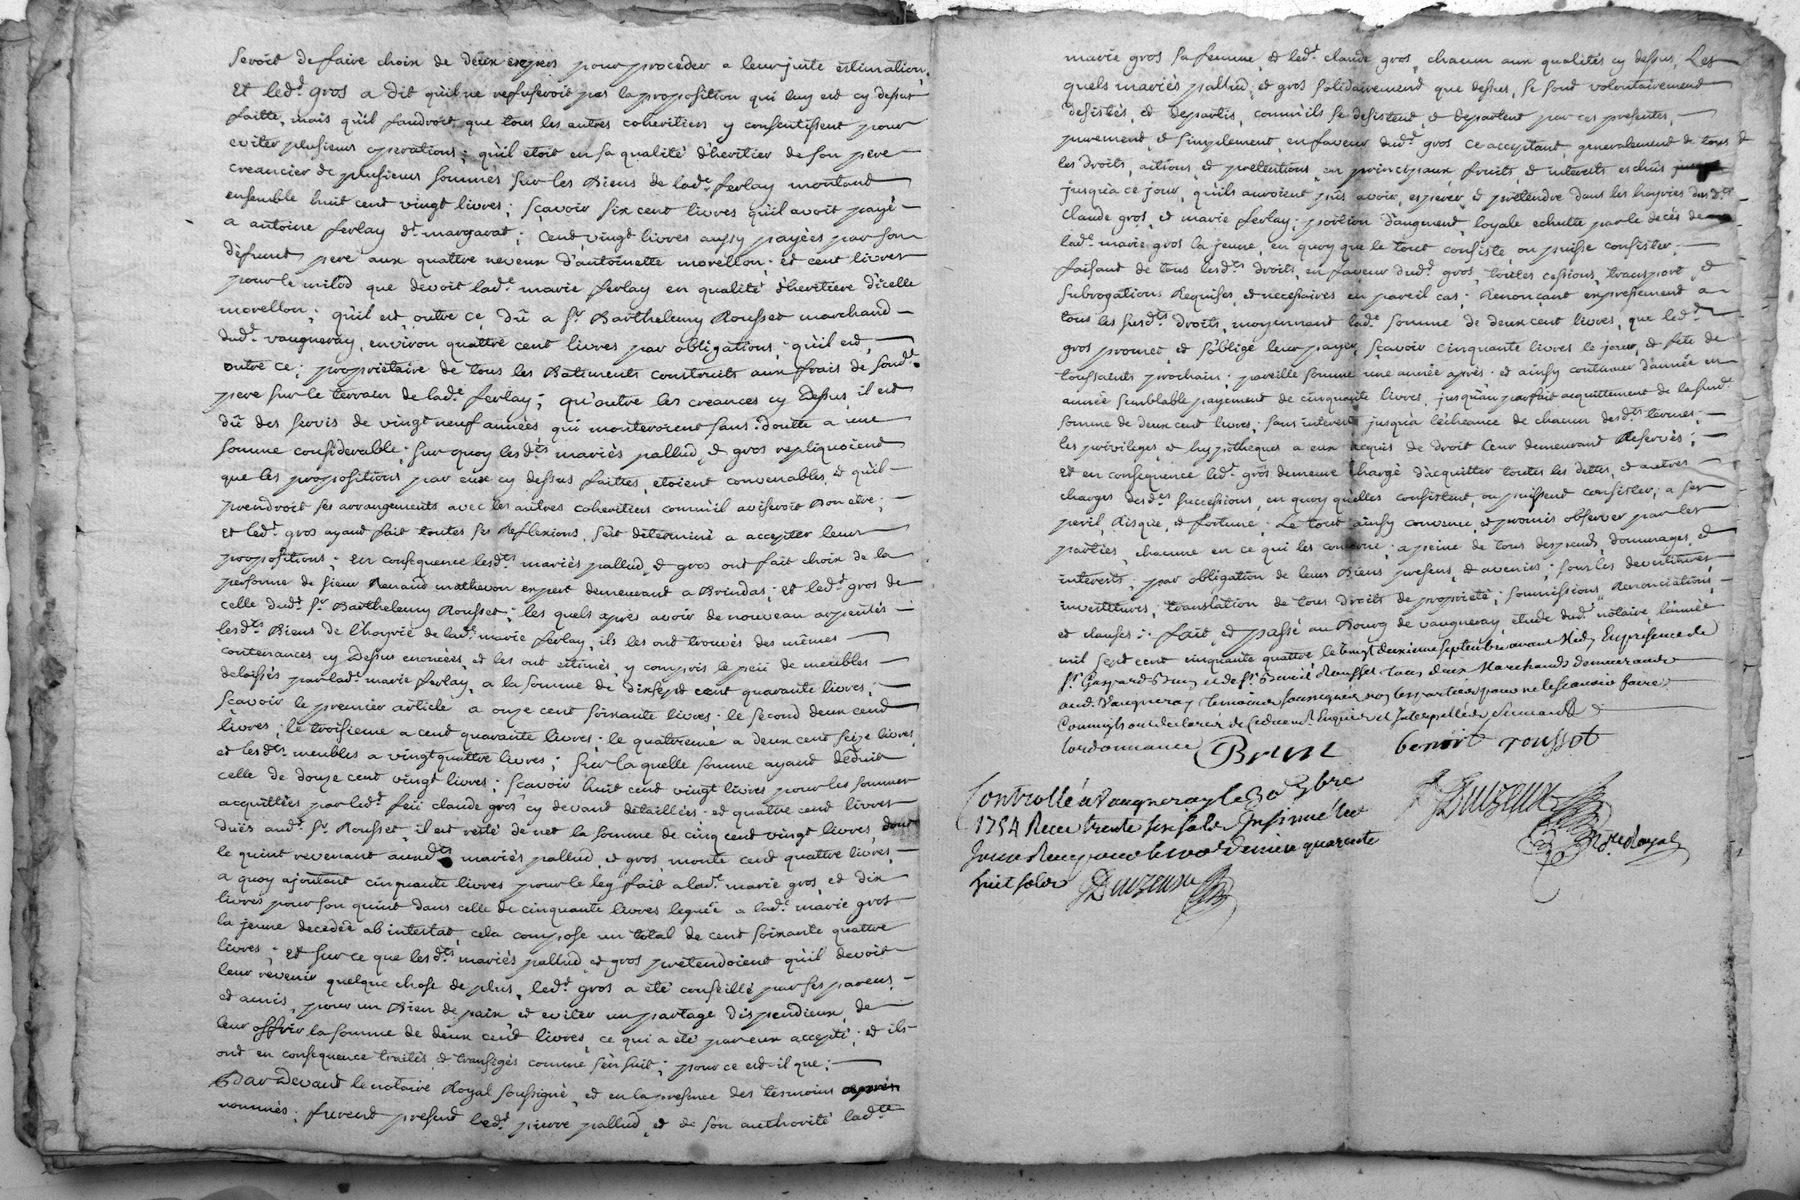 seroit de faire choix de deux experts pour proceder a leur juste estimation,
Et led.t gros a dit qu'il ne refuseroit pas la proposition qui luy est cy dessus
faitte, mais qu'il faudroit que tous les autres coheritiers y consentissent pour
eviter plusieurs operations; qu'il etoit en sa qualité d'heritier de son pere
creancier de plusieurs sommes sur les Biens de lad.e ferlay montant
ensemble huit cent vingt livres; sçavoir six cent livres qu'il avoit payé
a antoine ferlay d.t margarat; cent vingt livres aussy payées par son
défunt pere aux quattre neveux d'antoinette morellon; et cent livres
pour le milod que devoit lad.e marie ferlay en qualité d'heritiere d'icelle
morellon; qu'il est outre ce dû a s.r Barthelemy Rousset marchand
dud.t vaugneray, environ quattre cent livres par obligations; qu'il est,
outre ce; proprietaire de tous les Batiments construits aux frais de sond.t
pere sur le terrain de lad.e ferlay; qu'outre les creances cy dessus, il est
dû des servis de vingt neuf années qui monteroient sans doutte a une
somme considerable; sur quoy lesd.ts mariés pallud, et gros repliquoient
que les propositions par eux cy dessus faittes, etoient convenables, et qu'il
prendroit ses arrangements avec les autres coheritiers comm'il aviseroit Bon etre;
Et led.t gros ayant fait toutes ses Reflexions, s'est déterminé a accepter leurs
propositions; en consequence lesd.ts mariés pallud, et gros ont fait choix de la
personne de sieur Renaud mathevon expert demeurant a Brindas; et led.t gros de
celle dud.t s.r Barthelemy Rousset; les quels apres avoir de nouveau arpentés
lesd.ts Biens de l'hoyrie de lad.e marie ferlay, ils les ont trouvés des mêmes
contenances cy dessus enoncées, et les ont estimés, y compris le peü de meubles
delaissés par lad.e marie ferlay, a la somme de dixsept cent quarante livres;
scavoir le premier article a onze cent soixante livres; le second deux cent
livres; le troisieme a cent quarante livres; le quatrieme a deux cent seize livres,
et lesd.ts meubles a vingt quattre livres; sur la quelle somme ayant déduit
celle de douze cent vingt livres; scavoir huit cent vingt livres pour les sommes
acquittées par led.t feü claude gros cy devant détaillées; et quatre cent livres
duës aud.t s.r Rousset, il est resté de net la somme de cinq cent vingt livres, dont
le quint revenant auxd.ts mariés pallud, et gros, monte cent quattre livres,
a quoy ajoutant cinquante livres pour le leg fait a lad.e marie gros, et dix
livres pour son quint dans celle de cinquante livres leguée a lad.e marie gros
la jeune decedée ab intestat, cela compose un total de cent soixante quattre
livres; Et sur ce que lesd.ts mariés pallud, et gros pretendoient qu'il devoit
leur revenir quelque chose de plus, led.t gros a été conseillé par ses parens,
et amis, pour un Bien de paix et eviter un partage dispendieux, de
leur offrir la somme de deux cent livres, ce qui a été par eux accepté; et ils
ont en consequence traités et transigés comme s'en suit; pour ce est-il que;
Pardevant le notaire Royal soussigné, et en la presence des temoins apres
nommés; furent present led.t pierre pallud, et de son authorité lad.te
marie gros sa femme et led.t claude gros, chacun aux qualités cy dessus, Les
quels mariés pallud, et gros solidairement que dessus, se sont volontairement
desistés, et departis, comm'ils se desistent et departent par ces presentes,
purement et simplement, en faveur dud.t gros ce acceptant, generalement de tous
les droits, actions, et prétentions, en principaux fruits, et interets eschus
jusqu'a ce jour, qu'ils auroient pus avoir, esperer, et pretendre dans les hoyries desd.ts
claude gros, et marie ferlay; portion d'augment, loyale echutte par le decés de
lad.e marie gros la jeune, en quoy que le tout consiste, ou puisse consister.
faisant de tous lesd.ts droits, en faveur dud.t gros, toutes cessions, transport, et
subrogations Requises, et necessaires en pareil cas; Renonçant expressement a
tous les susd.ts droits, moyennant lad.e somme de deux cent livres, que led.t
gros promet, et s'oblige leur payer, sçavoir cinquante livres le jour, et fête de
toussaints prochain; pareille somme une année après; et ainsy continuer d'année en
année semblable payement de cinquante livres, jusqu'au parfait acquittement de lasusd.e
somme de deux cent livres; sans interest jusqu'à l'écheance de chacun desd.ts termes;
les privileges, et hypotheques a eux acquis de droit leur demeurant Reservés;
Et en consequence led.t gros demeure chargé d'acquitter toutes les dettes, et autres
charges desd.es successions, en quoy qu'elles consistent, ou puissent consister, a ses
peril, Risque, et fortune; Le tout ainsy convenu, et promis observer par les
parties, chacune en ce qui les concerne; a peine de tous despends, dommages, et
interests; par obligation de leurs Biens presens, et avenirs; sous les devestitures,
investitures; translation de tous droits de proprieté; soumissions, Renonciations,
et clauses; fait, et passé au Bourg de vaugneray, etude dud.t notaire, l'année
mil sept cent cinquante quattre le vingt deuxieme septembre avant Midy En presence de
s.r Gaspard Brun et de s.r Benoit Rousset tous deux Marchands demeurants
aud. Vaugneray temoins soussignés non les parties pour ne le scavoir faire
Comm'ils ont declaré de ce duement Enquis et Interpellés suivant
lordonnance
Brun
benoit rousset
Controllé a Vaugneray le 30 7bre
1754 Receu trente six sols Insinué led
jour Receu pour le centieme denier quarante
huit sols